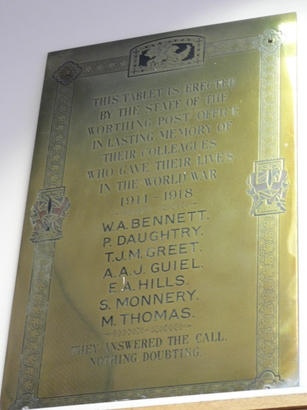 THIS TABLET IS ERECTED
BY THE STAFF OF THE
WORTHING POST OFFICE
IN LASTING MEMORY OF
THEIR COLLEAGUES
WHO GAVE THEIR LIVES
IN THE WORLD WAR
1914-1918.
W.A. BENNETT.
P. DAUGHTRY.
T.J.M. GREET.
A.A.J. GUIEL.
E.A. HILLS.
S. MONNERY.
M. THOMAS.
THEY ANSWERED THE CALL,
NOTHING DOUBTING.